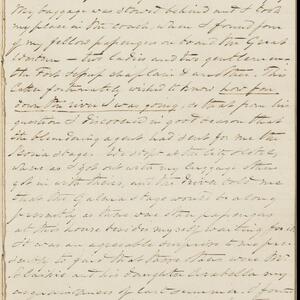 My baggage was stowed behind and I took
my place in the coach, when I found four
of my fellow passengers on board the Great
Western — two ladies and two gentlemen —
the and another. This
latter fortunately wished to know how far
down the river I was going, so that from his
question I discovered in good season that
the blundering agent had sent for me the
stages. We stopped at the City Hotel,
where as I got out with my baggage others
got in with theirs, and the driver told me
that the Galena stage would be along
presently as there was other passengers
at the house besides myself waiting for it
It was an agreeable surprise to me pre-
sently to find that those others were Mr.
and his daughter Arabella my
acquaintances of last summer. I found